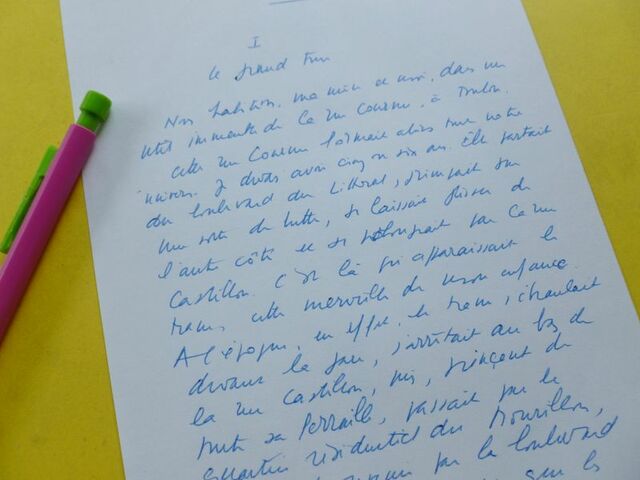 I
Le grand
Nous habitions, ma mère et moi, dans un
petit immeuble de la rue Courbe, à Toulon.
cette rue Courbe formait alors tout notre
univers. Je devais avoir cinq ou six ans. Elle partait
du boulevard du Littoral, grimpait sur
une sorte de butte, se laissait glisser de
l'autre côté et se prolongeait par la rue
Castillon. C'est là qu'apparaissait le
tram, cette merveille de mon enfance.
A l'époque, en effet, le tram, s'ébranlait
devant la gare, s'arrêtait au bas de
la rue Castillon, puis, grinçant de
toute sa ferraille, passait par le
quartier résidentiel du Mourillon,
par le boulevard
que les